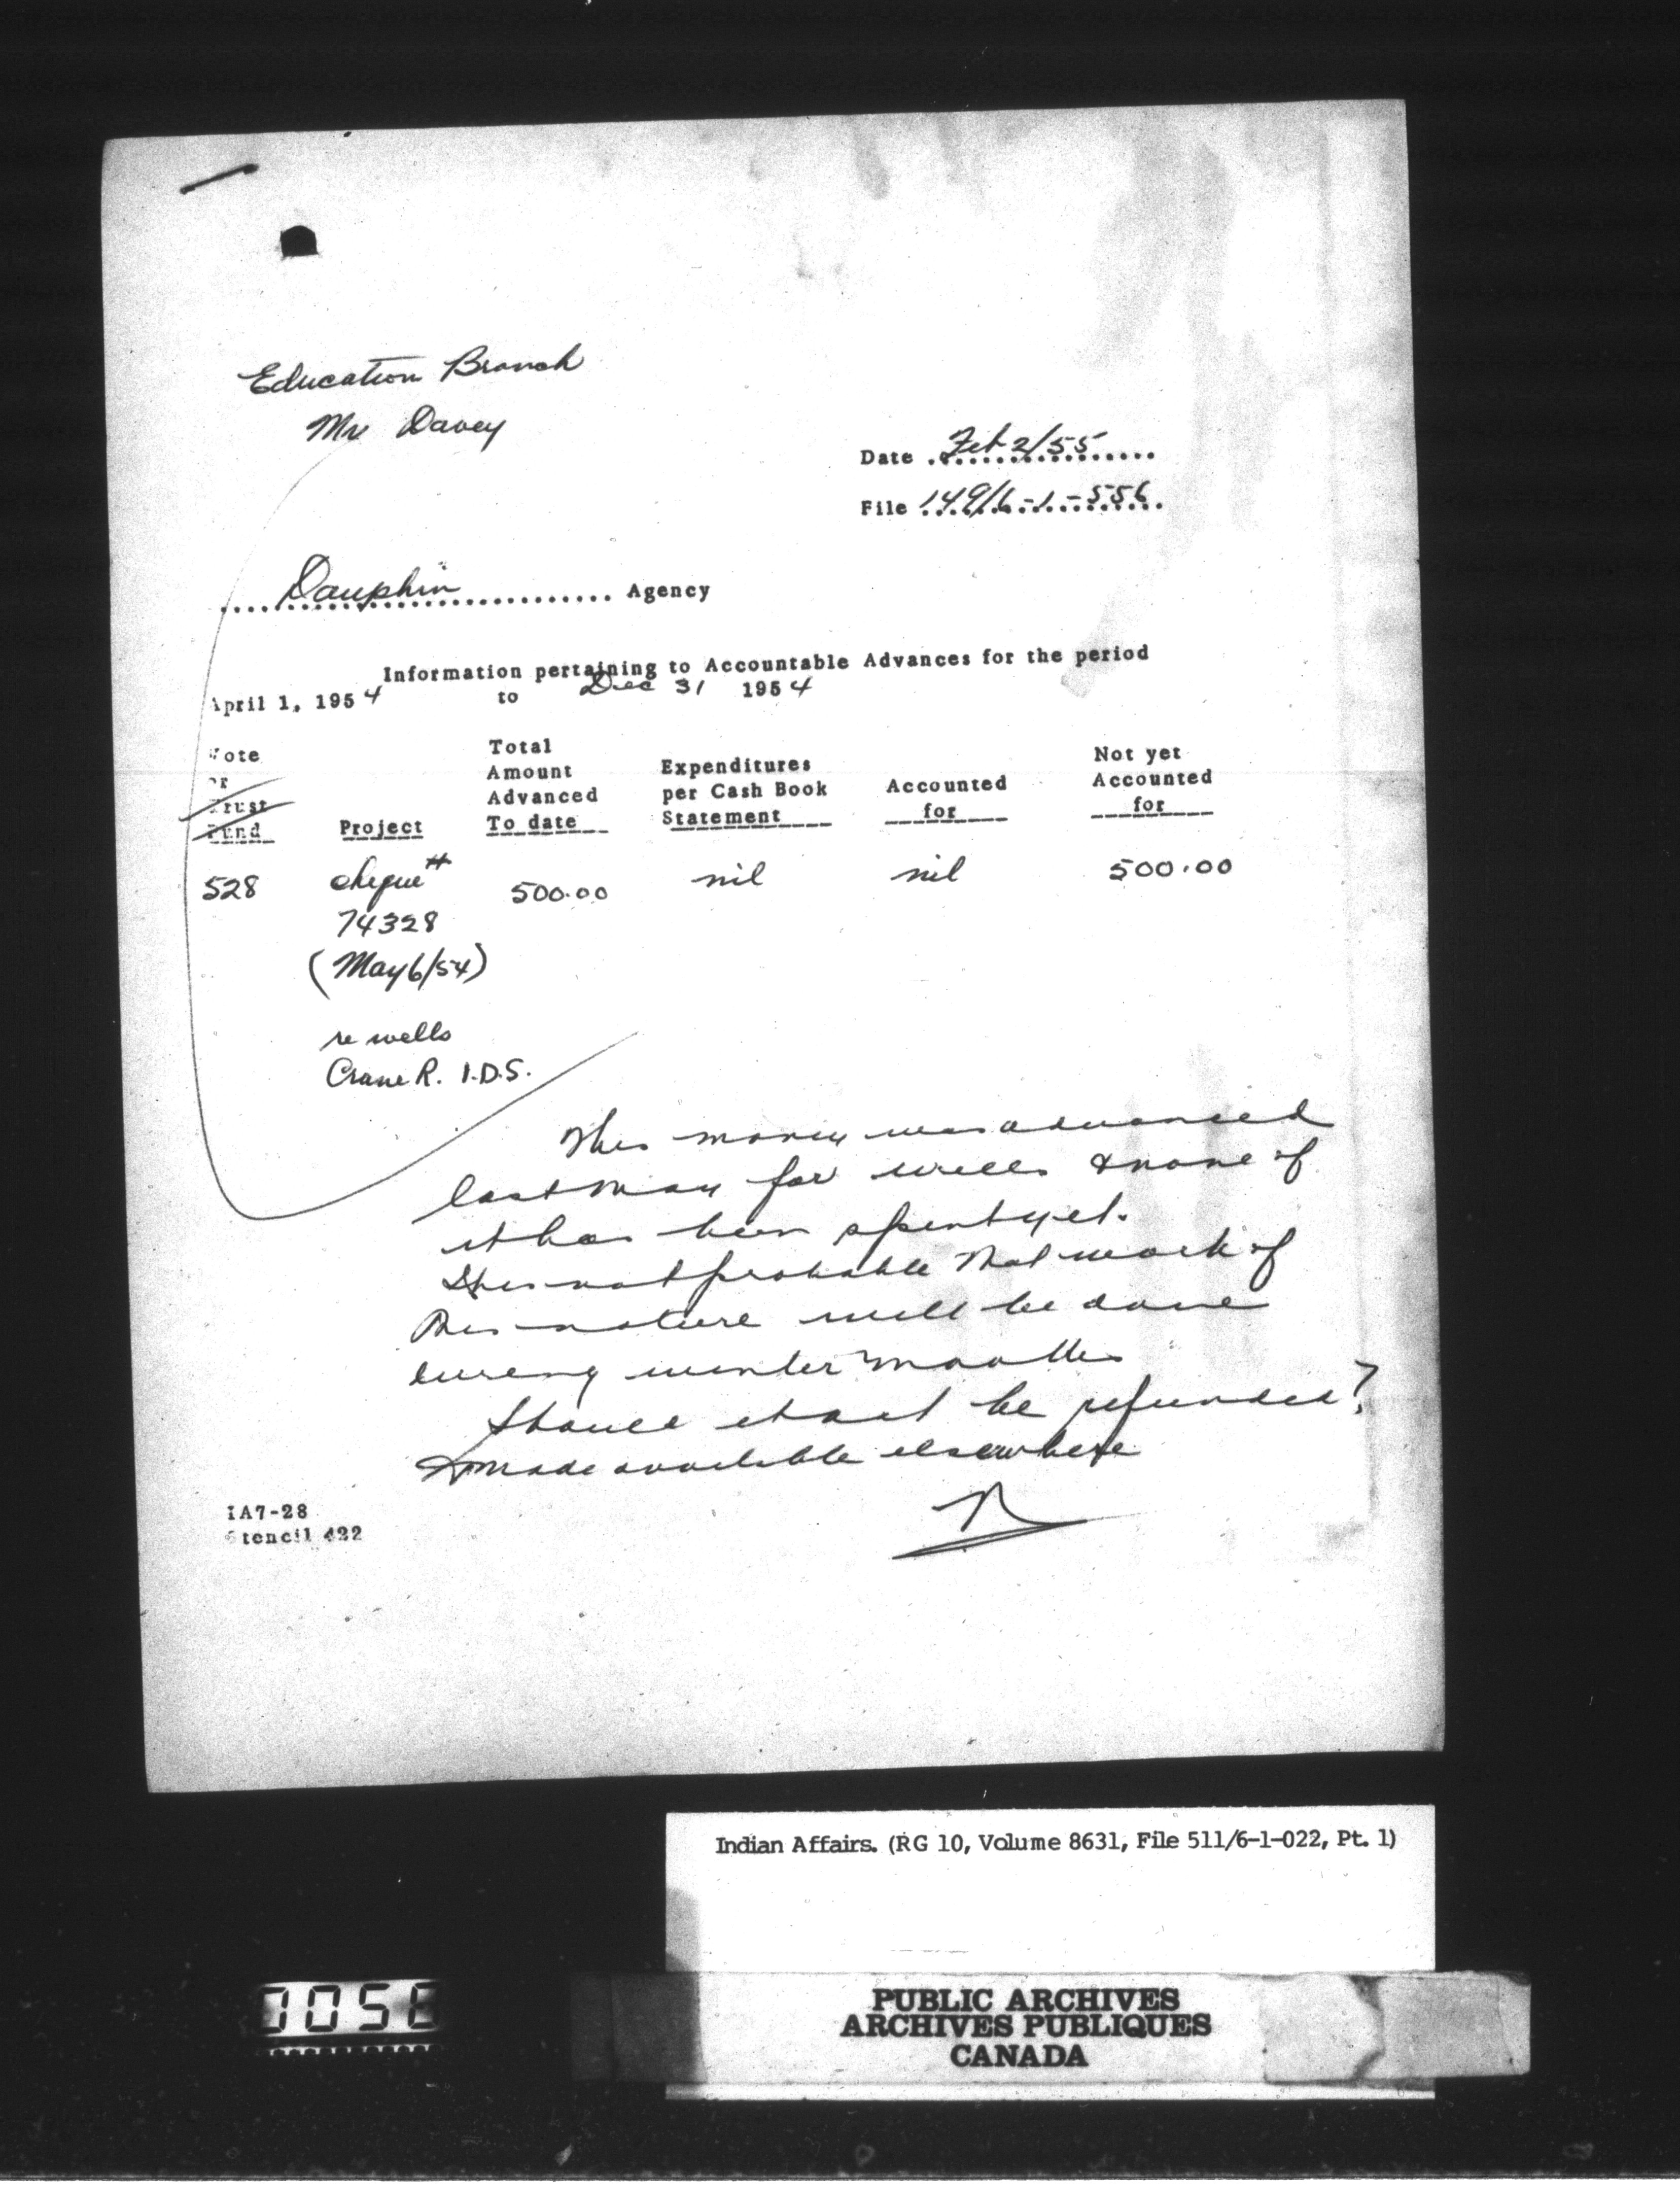 Education Branch
Mr Davey
Date Feb 2/55
File 149/6-1-556
Dauphin Agency
Information pertaining to Accountable Advances for the period
April 1, 1954 to Dec 31 1954
Vote or Trust Fund Project Total Amount Advanced To date Expenditures per Cash Book Statement Accounted for Not yet Accounted for
528 cheque # 500.00 nil nil 500.00
74328
(May 6/54)
re wells
Crane R. I.D.S.
This money was advanced
last May for wells & none of
it has been spent yet.
It is not probable that work of
this nature will be done
during winter months
Should it not be refunded?
& made available elsewhere
IA7-28
Stencil 422
Indian Affairs. (RG 10, Volume 8631, File 511/6-1-022, Pt. 1)
PUBLIC ARCHIVES
ARCHIVES PUBLIQUES
CANADA